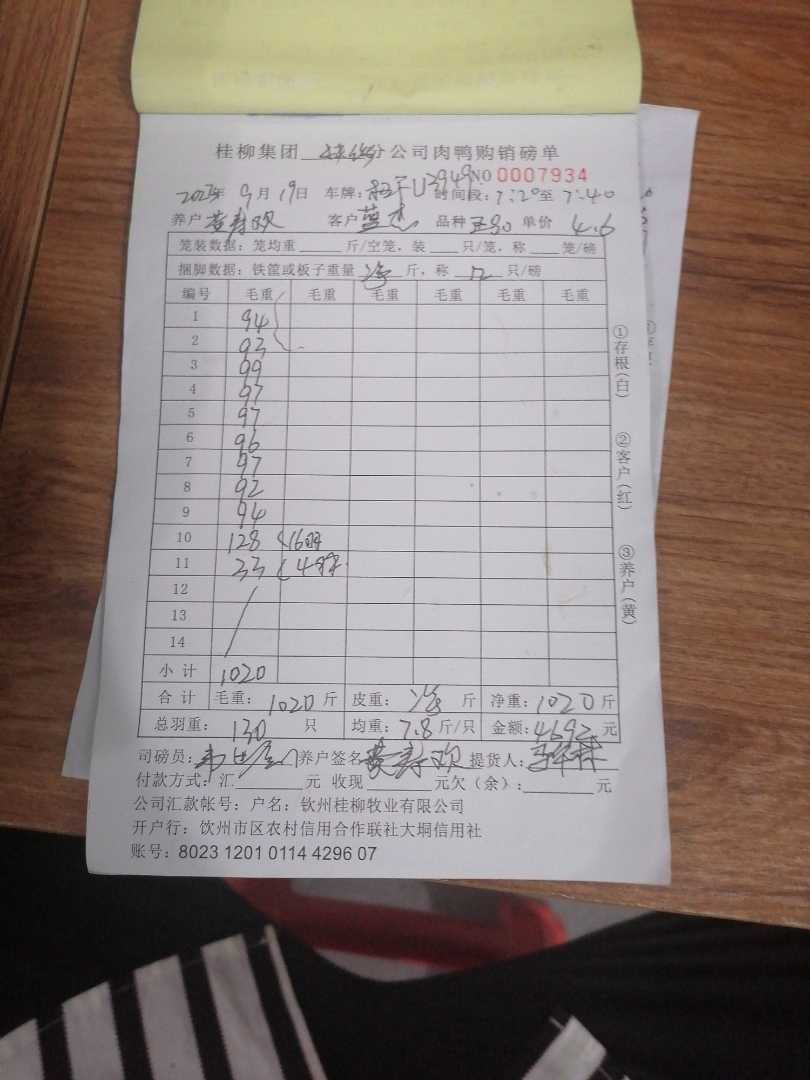 桂柳集团 分公司肉鸭购销磅单
NO 0007934
2023年 9月 19日 车牌: U3949 时间段: 7:20至 7:40
养户 黄寿欢 客户 蓝杰 品种 单价 4.6
笼装数据: 笼均重 斤/空笼, 装 只/笼, 称 笼/磅
捆脚数据: 铁筐或板子重量 净 斤, 称 12 只/磅
编号 毛重 毛重 毛重 毛重 毛重 毛重
1 94
2 93
3 99
4 97
5 97
6 96
7 97
8 92
9 94
10 128 (16只
11 33 (4只
12
13
14
小计 1020
合计 毛重: 1020 斤 皮重: 净 斤 净重: 1020 斤
总羽重: 130 只 均重: 7.8 斤/只 金额: 4692 元
司磅员: 养户签名 黄寿欢 提货人:
付款方式: 汇 元 收现 元欠(余): 元
公司汇款帐号: 户名: 钦州桂柳牧业有限公司
开户行: 饮州市区农村信用合作联社大垌信用社
账号: 8023 1201 0114 4296 07
①存根(白)
②客户(红)
③养户(黄)